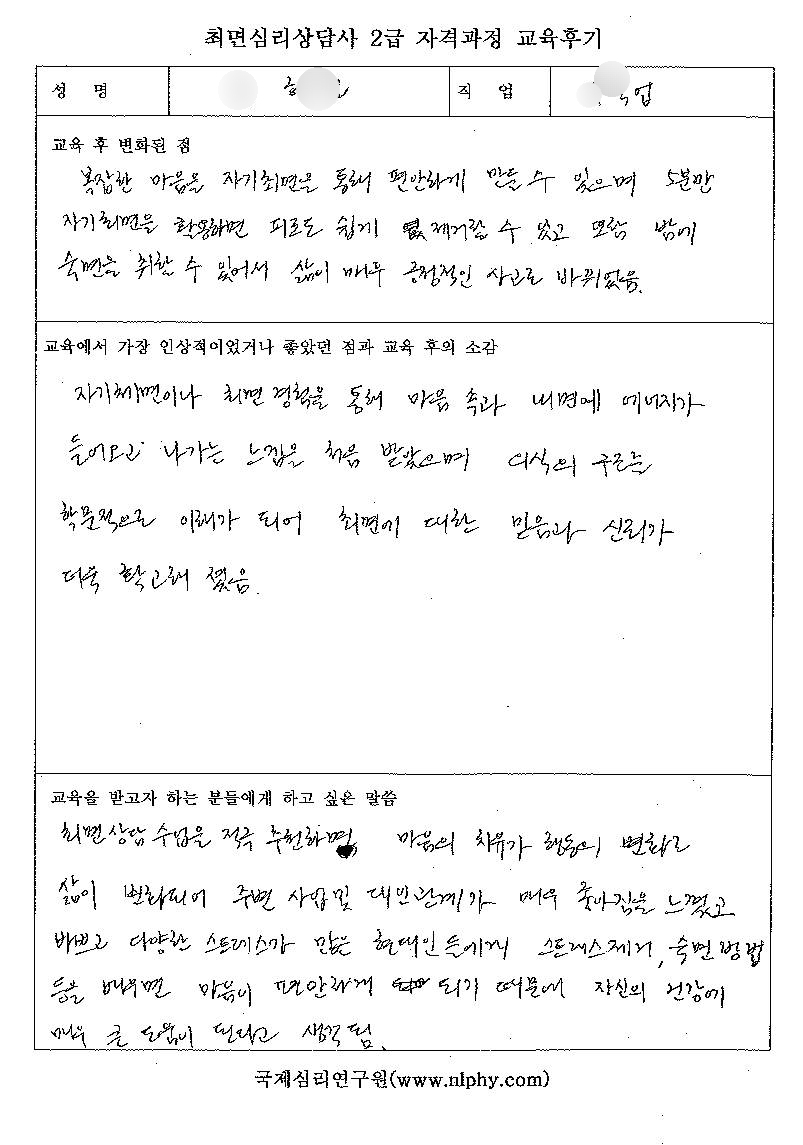 최면심리상담사 2급 자격과정 교육후기
성 명
직 업 업
교육 후 변화된 점
복잡한 마음을 자기최면을 통해 편안하게 만들 수 있으며 5분만
자기최면을 활용하면 피로도 쉽게 제거할 수 있고 또한 밤에
숙면을 취할 수 있어서 삶이 매우 긍정적인 사고로 바뀌었음.
교육에서 가장 인상적이었거나 좋았던 점과 교육 후의 소감
자기최면이나 최면 경험을 통해 마음 속과 내면에 에너지가
들어오고 나가는 느낌을 처음 받았으며 의식의 구조를
학문적으로 이해가 되어 최면에 대한 믿음과 신뢰가
더욱 확고해 졌음.
교육을 받고자 하는 분들에게 하고 싶은 말씀
최면상담 수업을 적극 추천하며, 마음의 치유가 행동의 변화로
삶이 변화되어 주변 사업및 대인관계가 매우 좋아짐을 느꼈고
바쁘고 다양한 스트레스가 많은 현대인들에게 스트레스제거, 숙면방법
등을 배우면 마음이 편안하게 되기 때문에 자신의 건강에
매우 큰 도움이 된다고 생각됨.
국제심리연구원(www.nlphy.com)